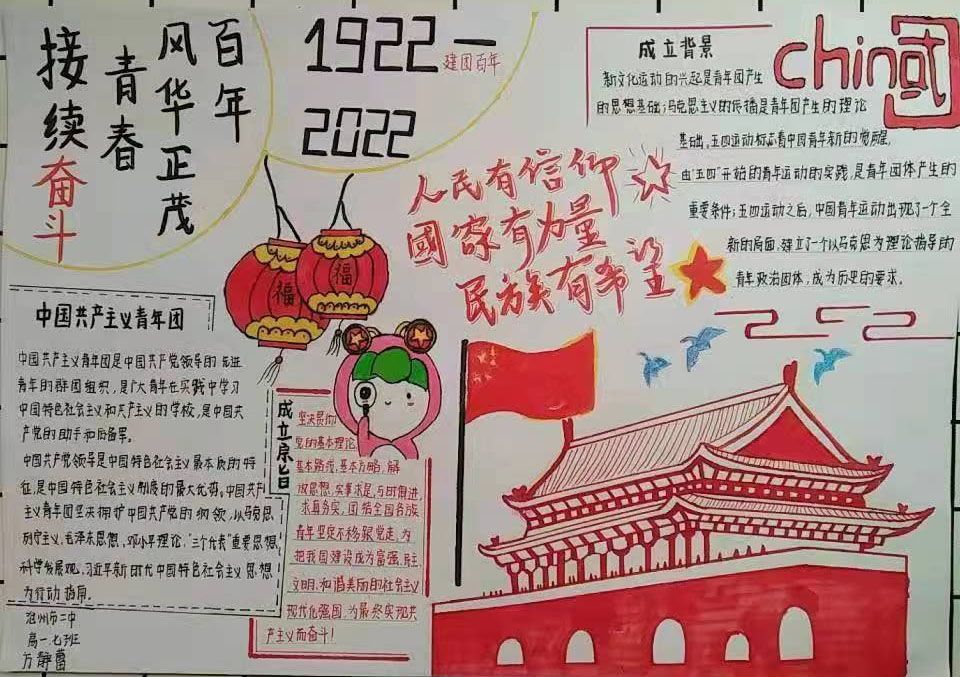 百年
风华正茂
青春
接续奋斗
1922—
建团百年
2022
成立背景
china国
新文化运动的兴起是青年团产生
的思想基础;马克思主义的传播是青年团产生的理论
基础,五四运动标志着中国青年新的觉醒,
由“五四”开始的青年运动的实践,是青年团体产生的
重要条件;五四运动之后,中国青年运动出现了一个全
新的局面,建立了一个以马克思为理论指导的
青年政治团体,成为历史的要求。
人民有信仰
國家有力量
民族有希望
福
福
中国共产主义青年团
中国共产主义青年团是中国共产党领导的先进
青年的群团组织,是广大青年在实践中学习
中国特色社会主义和共产主义的学校,是中国共
产党的助手和后备军。
中国共产党领导是中国特色社会主义最本质的特
征,是中国特色社会主义制度的最大优势。中国共产
主义青年团坚决拥护中国共产党的纲领,以马克思
列宁主义、毛泽东思想、邓小平理论、“三个代表”重要思想、
科学发展观、习近平新时代中国特色社会主义思想
为行动指南。
成立宗旨
坚决贯彻
党的基本理论
基本路线,基本方略,解
放思想,实事求是,与时俱进,
求真务实,团结全国各族
青年坚定不移跟党走,为
把我国建设成为富强,民主
文明,和谐美丽的社会主义
现代化强国,为最终实现共
产主义而奋斗!
沧州市二中
高一七班
方静蕾